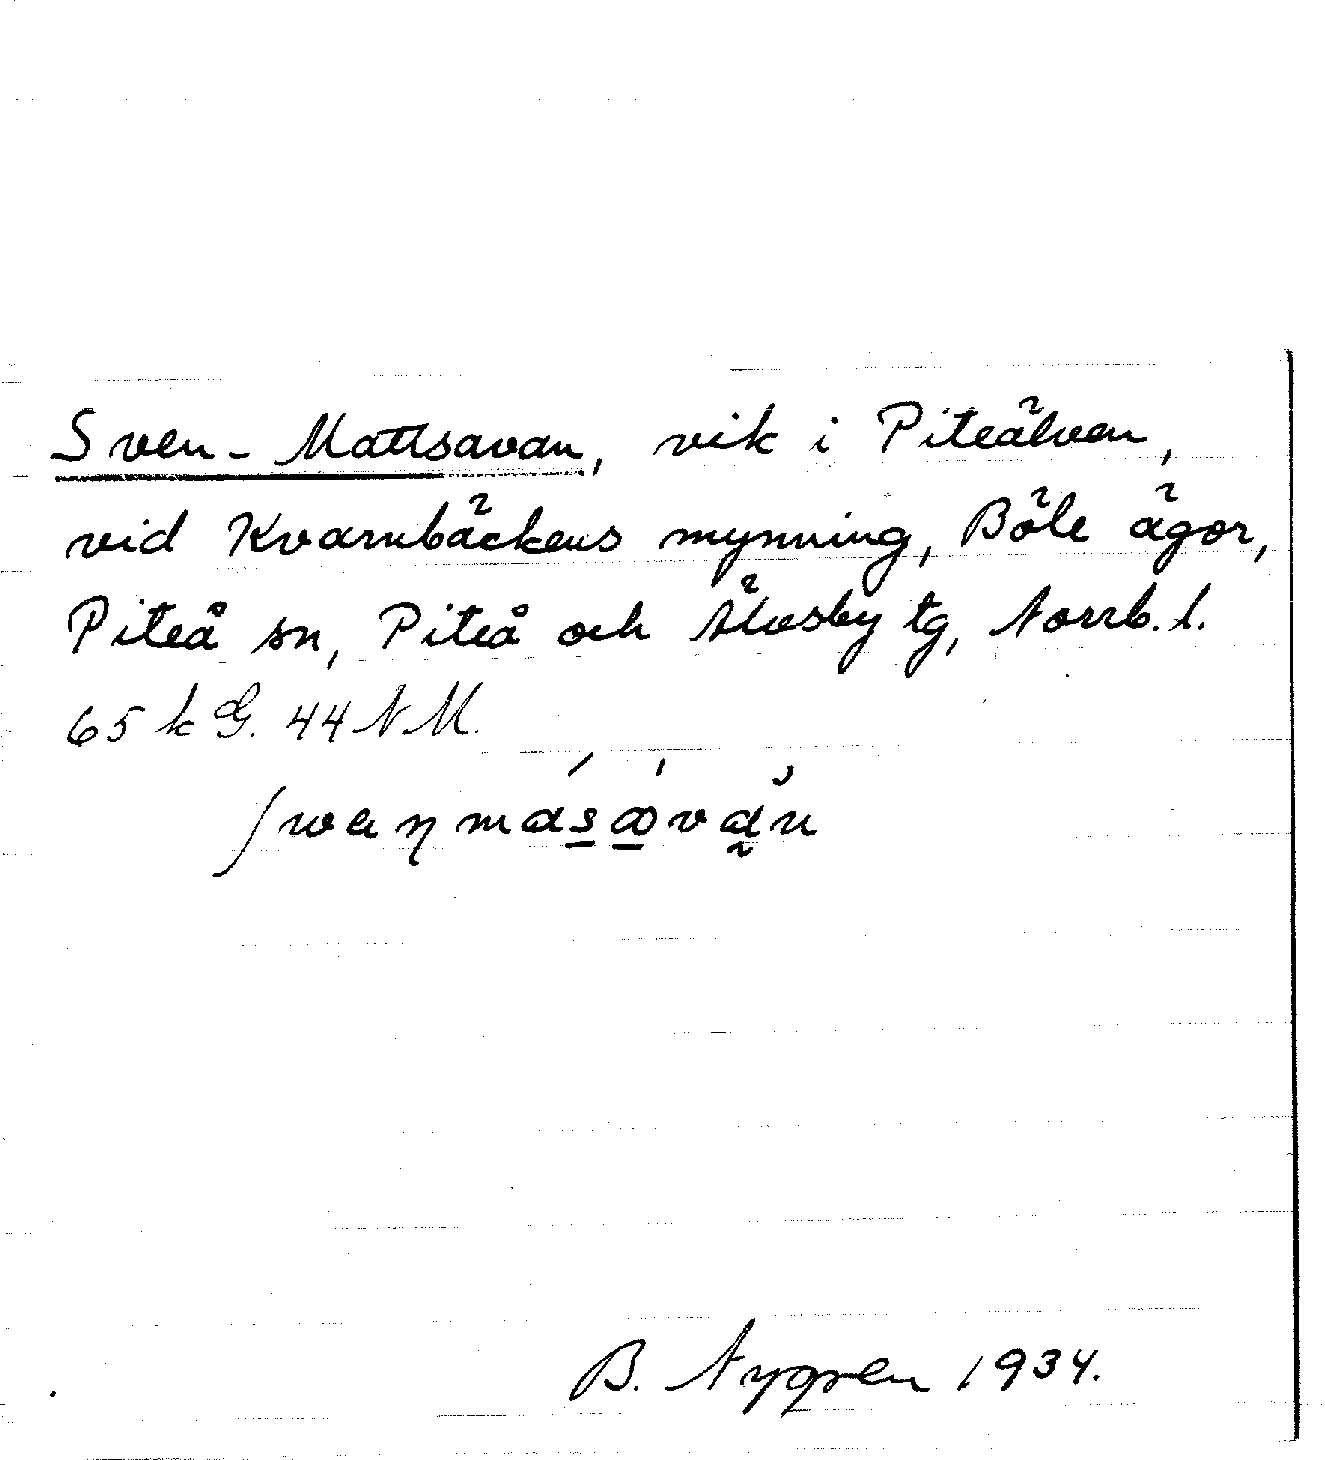 Sven-Mattsavan, vik i Piteälven,
vid Kvarnbäckens mynning, Böle ägor,
Piteå sn, Piteå och Älvsby tg, Norrb. l.
65 k G. 44 N M.
B. Nygren 1934.